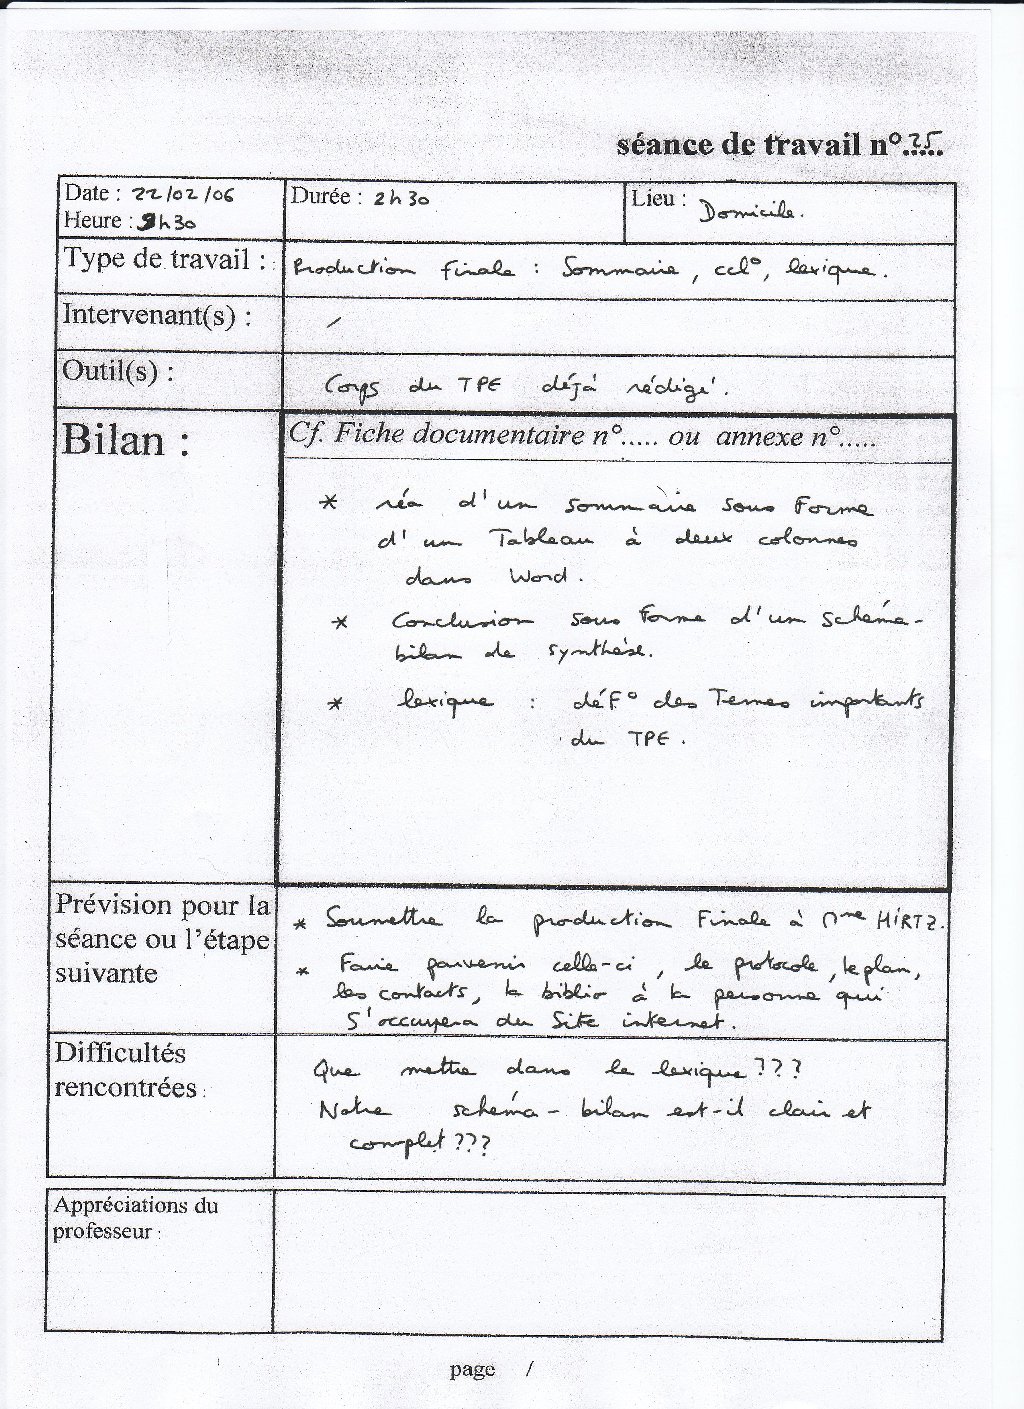 séance de travail n°.25..
Date : 22/02/06
Heure : 9h30
Durée : 2h30
Lieu : Domicile.
Type de travail :
Production finale : Sommaire, ccl°, lexique.
Intervenant(s) :
/
Outil(s) :
Corps du TPE déjà rédigé.
Bilan :
Cf. Fiche documentaire n°..... ou annexe n°.....
* réa d'un sommaire sous Forme
d'un Tableau à deux colonnes
dans Word.
* Conclusion sous Forme d'un schéma-
bilan de synthèse.
* lexique : déF° des Termes importants
du TPE.
Prévision pour la
séance ou l'étape
suivante
* Soumettre la production Finale à Mme HIRTZ.
* Faire parvenir celle-ci, le protocole, le plan,
les contacts, la biblio à la personne qui
s'occupera du Site internet.
Difficultés
rencontrées :
Que mettre dans le lexique ???
Notre schéma-bilan est-il clair et
complet ???
Appréciations du
professeur :
page /